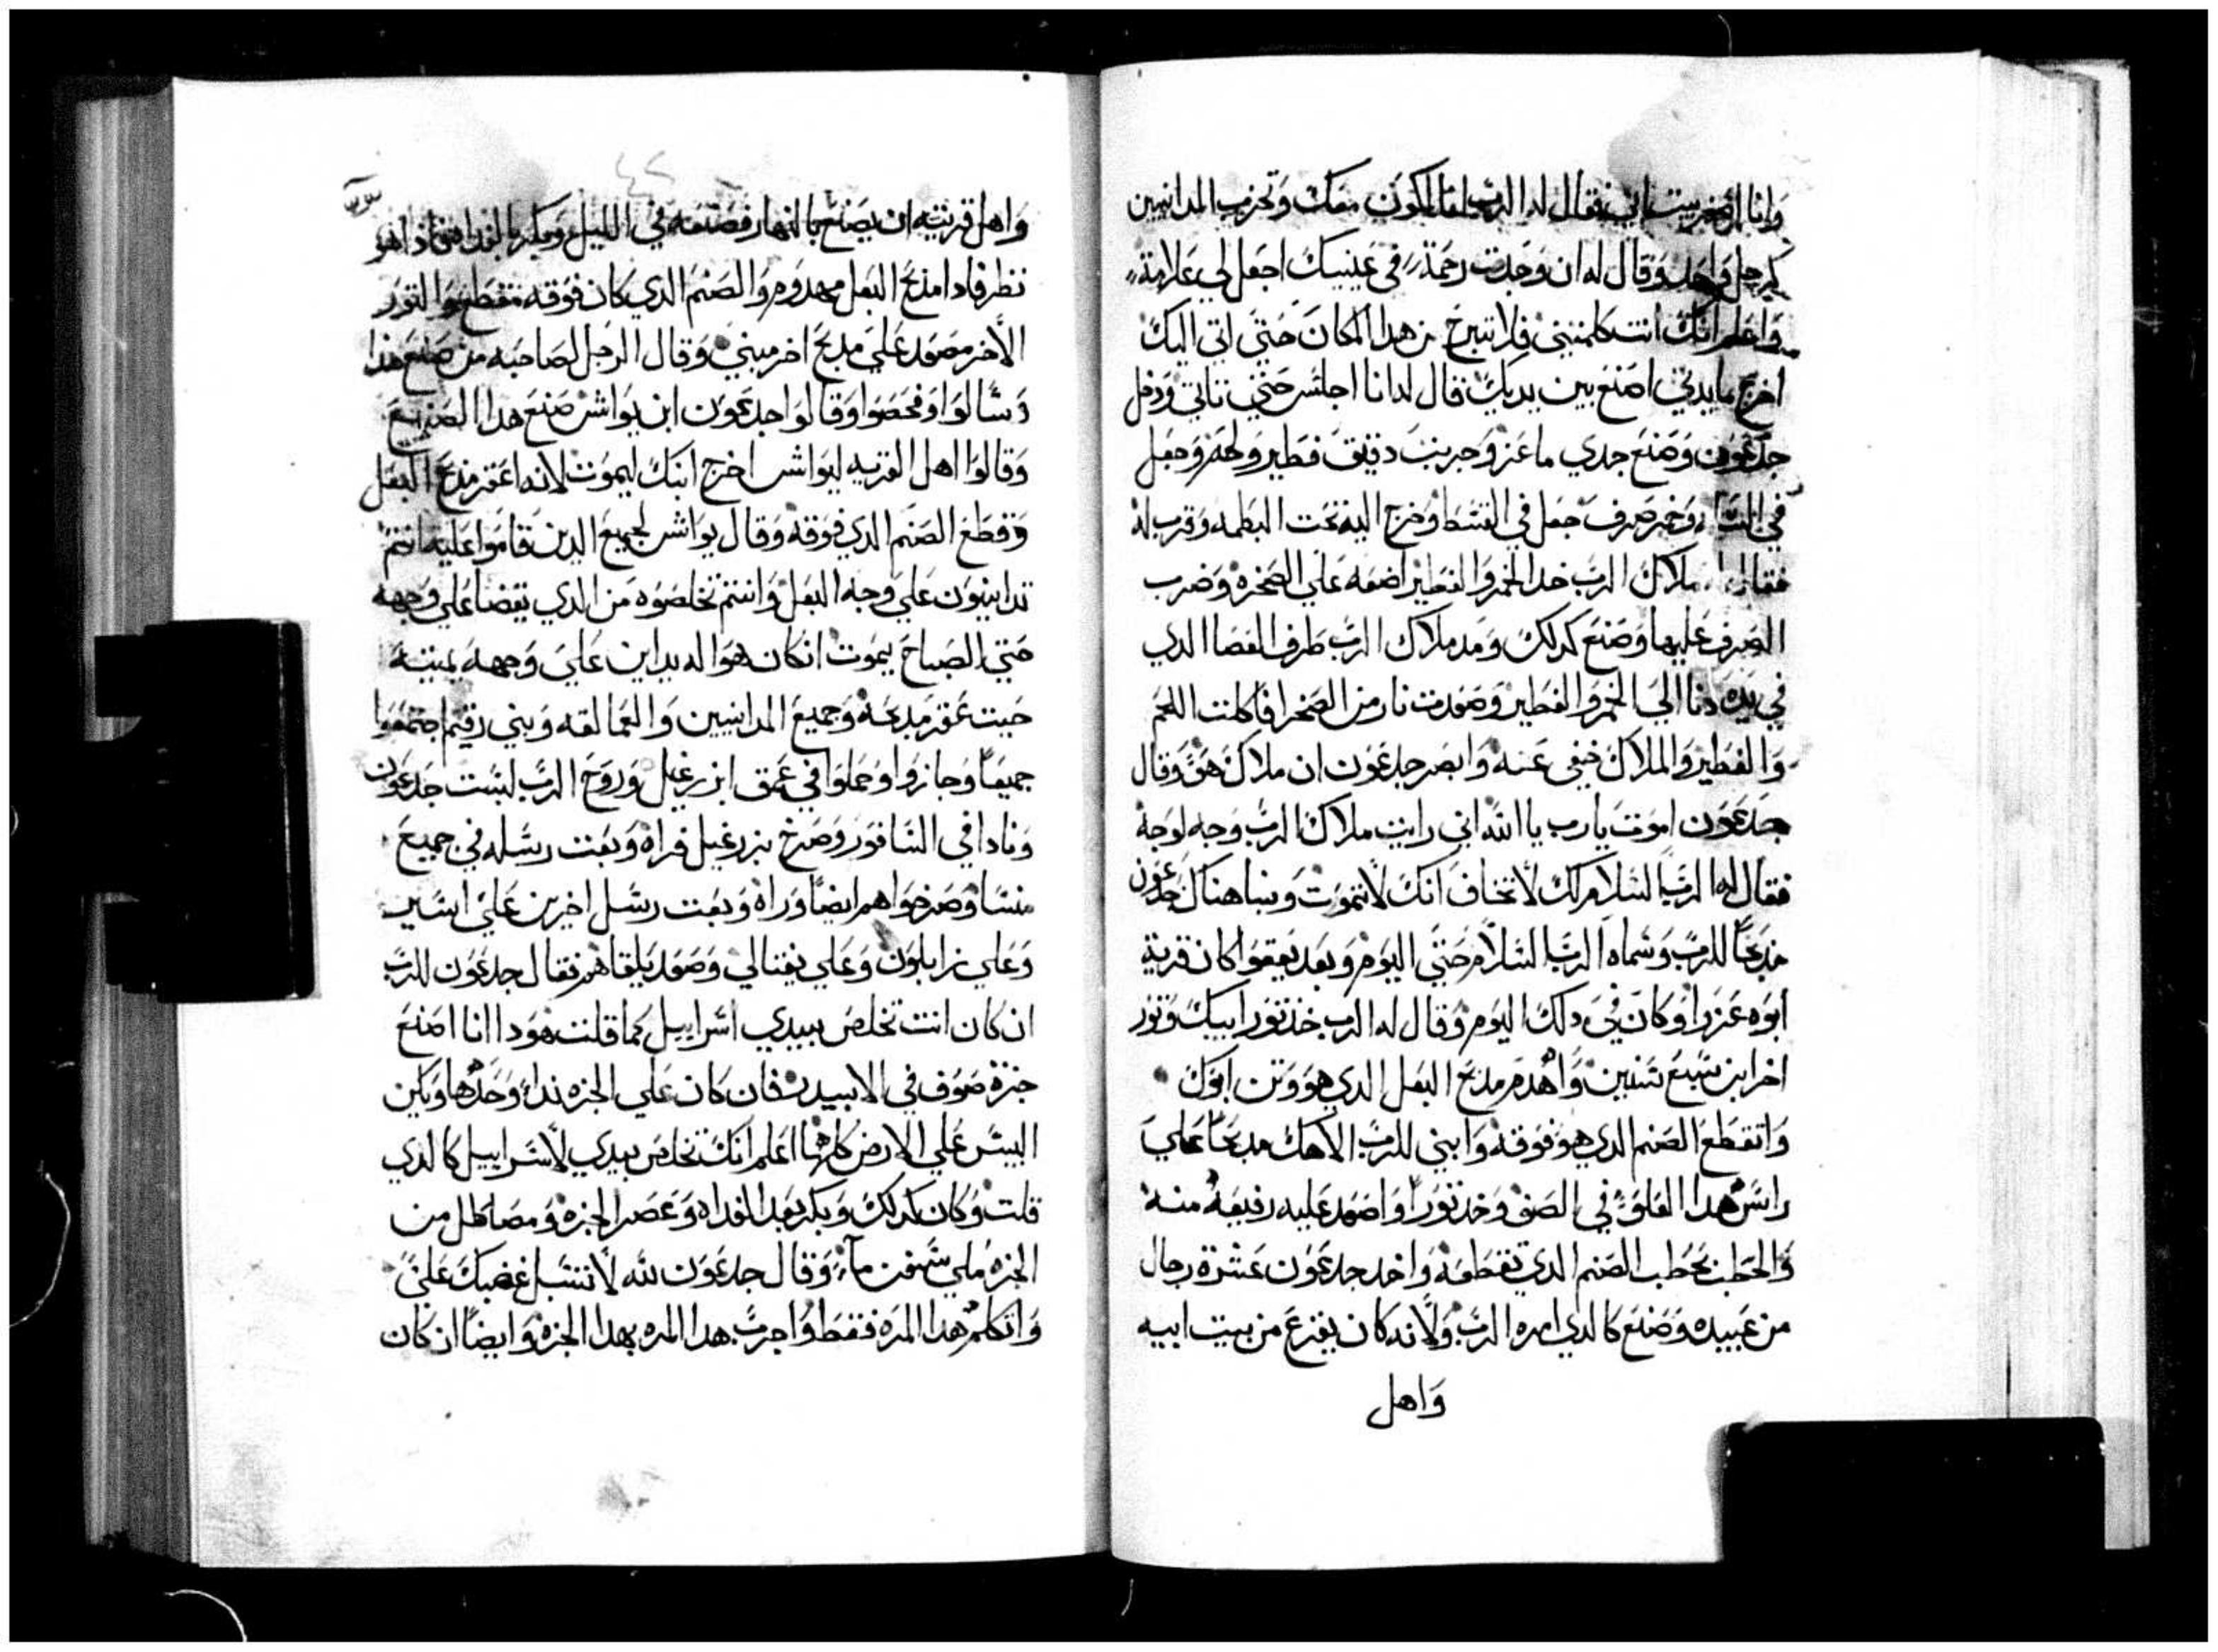 وانا اصغر بيت ابي فقال له الرب انا اكون معك وتحزب المدانيين
كرجل واحد وقال له ان وجدت رحمة في عينيك اجعل لي علامة
واعلم انك انت كلمتني فلا تبرح من هدا المكان حتي اتي اليك
اخرج ما يدي اصنع بين يديك قال له انا اجلس حتي تاتي ودخل
جدعون وصنع جدي ماعز وجريبت دقيق فطير ولحم وجعل
في وخمر صرف جعل في القسط وخرج اليه تحت البطمه وقرب له
فقال له ملاك الرب خد الخمر والفطير اضعه علي الصخره وضرب
الصرف عليها وصنع كدلك ومد ملاك الرب طرف العصا الدي
في يده دنا الي الخمر والفطير وصعدت نار من الصخر افاكلت اللحم
والفطير والملاك خفي عنه وابصر جدعون ان ملاك هو وقال
جدعون اموت يارب يا الله اني رايت ملاك الرب وجه لوجه
فقال له الرب السلام لك لا تخاف انك لا تموت وبنا هناك جدعون
مدبحا للرب وسماه الرب السلام حتي اليوم وبعد تعقوا كان قرية
ابوه عزرا وكان في دلك اليوم وقال له الرب خد تور ابيك وتور
اخر ابن سبع سنين واهدم مدبح البعل الدي هو وتن ابوك
واتقطع الصنم الدي هو فوقه وابني للرب الاهك مدبحا علي
راس هدا العلو في الصف وخد تورا واصعد عليه رفيعه منه
والحطب بحطب الصنم الدي تقطعه واخد جدعون عشرة رجال
من عبيده وصنع كالدي امره الرب ولانه كان يفزع من بيت ابيه
واهل
٤٢
واهل قريته ان يصنع بالنهار فصنعه في الليل وبكر بالغدا
نظر فادا مدبح البعل مهدوم والصنم الدي كان فوقه متقطع والتور
الاخر مصعد علي مدبح اخر مبني وقال الرجل لصاحبه من صنع هدا
وسالوا وفحصوا وقالوا جدعون ابن يواش صنع هدا الصنيع
وقالوا اهل القريه ليواش اخرج ابنك ليموت لانه اعقر مدبح البعل
وقطع الصنم الدي فوقه وقال يواش لجميع الدين قاموا عليه انتم
تداينون علي وجه البعل وانتم تخلصوه من الدي يقضا علي وجهه
حتي الصباح يموت ان كان هو اله يداين علي وجهه بميته
حيت عقر مدبحه وجميع المدانيين والعمالقه وبني رقيم اجتمعوا
جميعا وجازوا وحملوا في عمق ابزرعيل وروح الرب لبست جدعون
ونادا في السافور وصرخ بزرعيل فراه وبعت رسله في جميع
منسا وصرخوا هم ايضا وراه وبعت رسل اخرين علي اسير
وعلي زابلون وعلي نفتالي وصعد يلقاهم فقال جدعون للرب
ان كان انت تخلص بيدي اسراييل كما قلت هودا انا اصنع
جزة صوف في الابيدر فان كان علي الجزه نداء وحدها ويكن
اليبس علي الارض كلها اعلم انك تخلص بيدي لاسراييل كالدي
قلت وكان كدلك وبكر بعد الغداه وعصر الجزه ومصا طل من
الجزه ملي سهفت ماء وقال جدعون لله لا تشتبل غضبك علي
واتكلم هدا المره فقط واجرب هدا المره بهدا الجزه وايضا ان كان